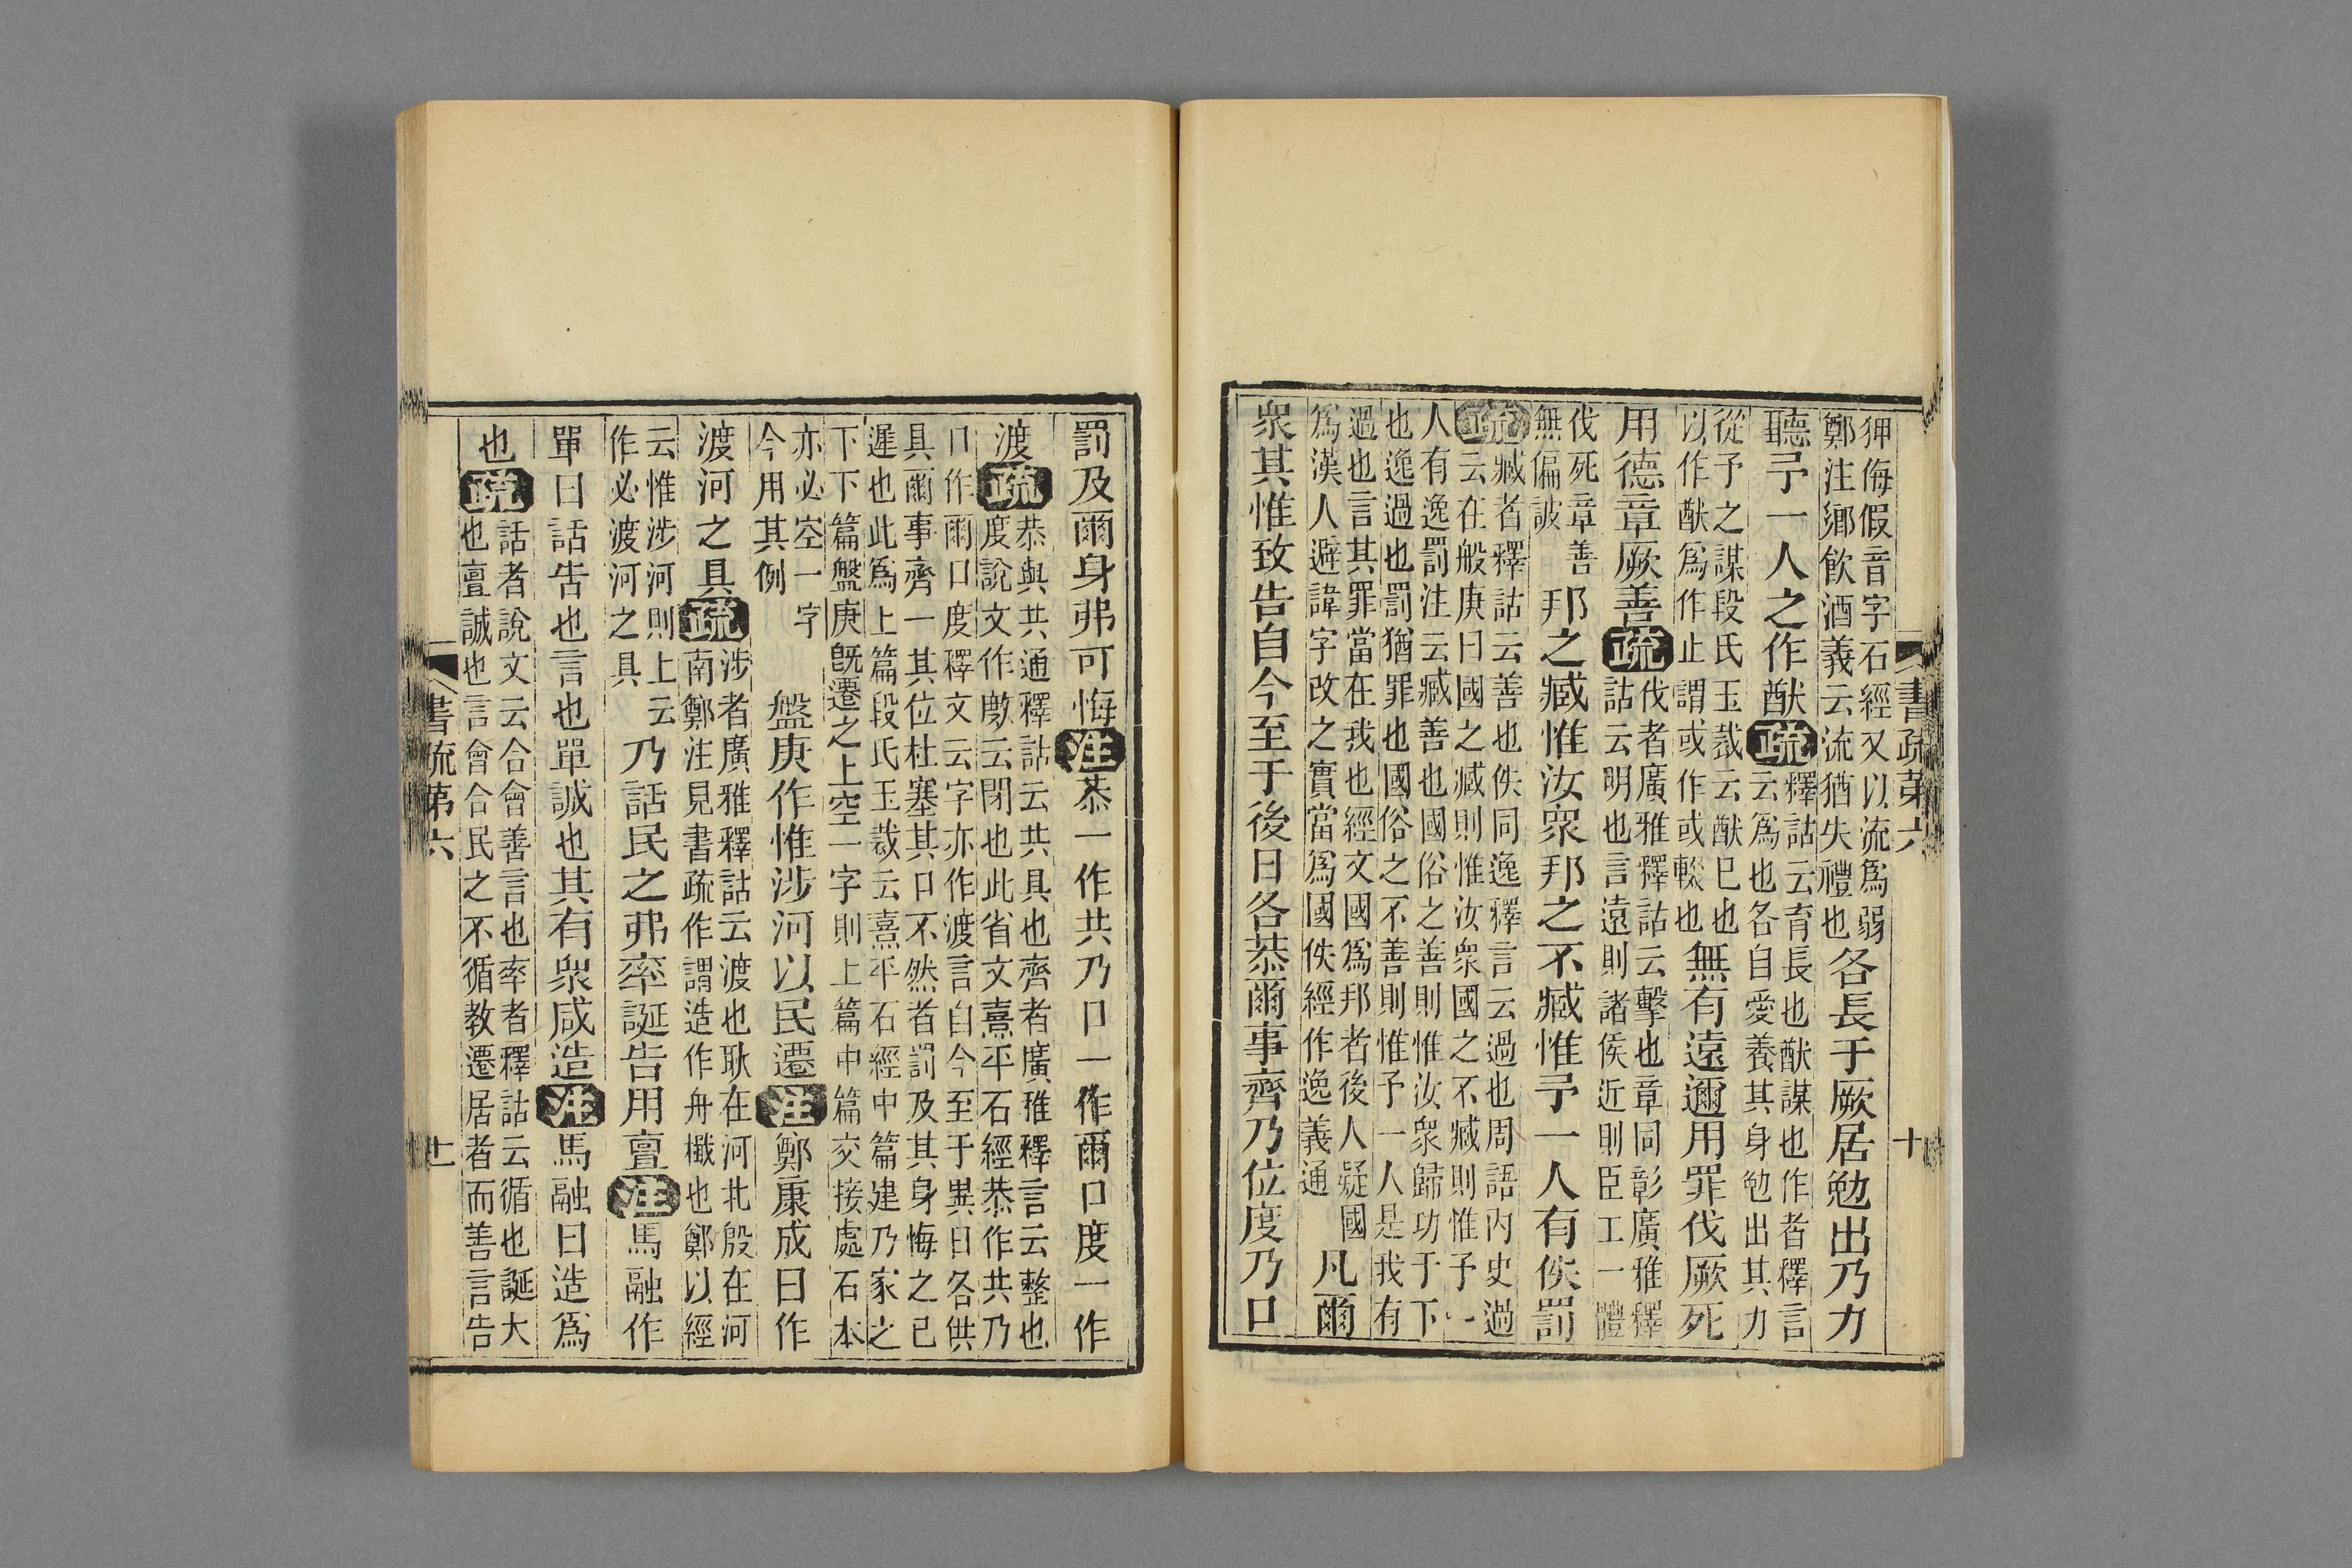 書疏第六
十
狎侮假音字石經又以流為弱
鄭注鄉飲酒義云流猶失禮也
各長于厥居勉出乃力
聽予一人之作猷
疏
釋詁云育長也猷謀也作者釋言
云為也各自愛養其身勉出其力
從予之謀段氏玉裁云猷已也
以作猷為作止謂或作或輟也
無有遠邇用罪伐厥死
用德章厥善
疏
伐者廣雅釋詁云擊也章同彰廣雅釋
詁云明也言遠則諸侯近則臣工一體
伐死章善
無偏詖
邦之臧惟汝眾邦之不臧惟予一人有佚罰
疏
臧者釋詁云善也佚同逸釋言云過也周語內史過
云在般庚曰國之臧則惟汝眾國之不臧則惟予一
人有逸罰注云臧善也國俗之善則惟汝眾歸功于下
也逸過也罰猶罪也國俗之不善則惟予一人是我有
過也言其罪當在我也經文國為邦者後人疑國
為漢人避諱字改之實當為國佚經作逸義通
凡爾
眾其惟致告自今至于後日各恭爾事齊乃位度乃口
罰及爾身弗可悔
注
恭一作共乃口一作爾口度一作
渡
疏
恭與共通釋詁云共具也齊者廣雅釋言云整也
度說文作敷云閉也此省文熹平石經恭作共乃
口作爾口度釋文云字亦作渡言自今至于異日各供
具爾事齊一其位杜塞其口不然者罰及其身悔之已
遲也此為上篇段氏玉裁云熹平石經中篇建乃家之
下下篇盤庚既遷之上空一字則上篇中篇交接處石本
亦必空一字
今用其例
盤庚作惟涉河以民遷
注
鄭康成曰作
渡河之具
疏
涉者廣雅釋詁云渡也耿在河北殷在河
南鄭注見書疏作謂造作舟檝也鄭以經
云惟涉河則上云
作必渡河之具
乃話民之弗率誕告用亶
注
馬融作
單曰話告也言也單誠也其有眾咸造
注
馬融曰造為
也
疏
話者說文云合會善言也率者釋詁云循也誕大
也亶誠也言會合民之不循教遷居者而善言告
書疏第六
十一